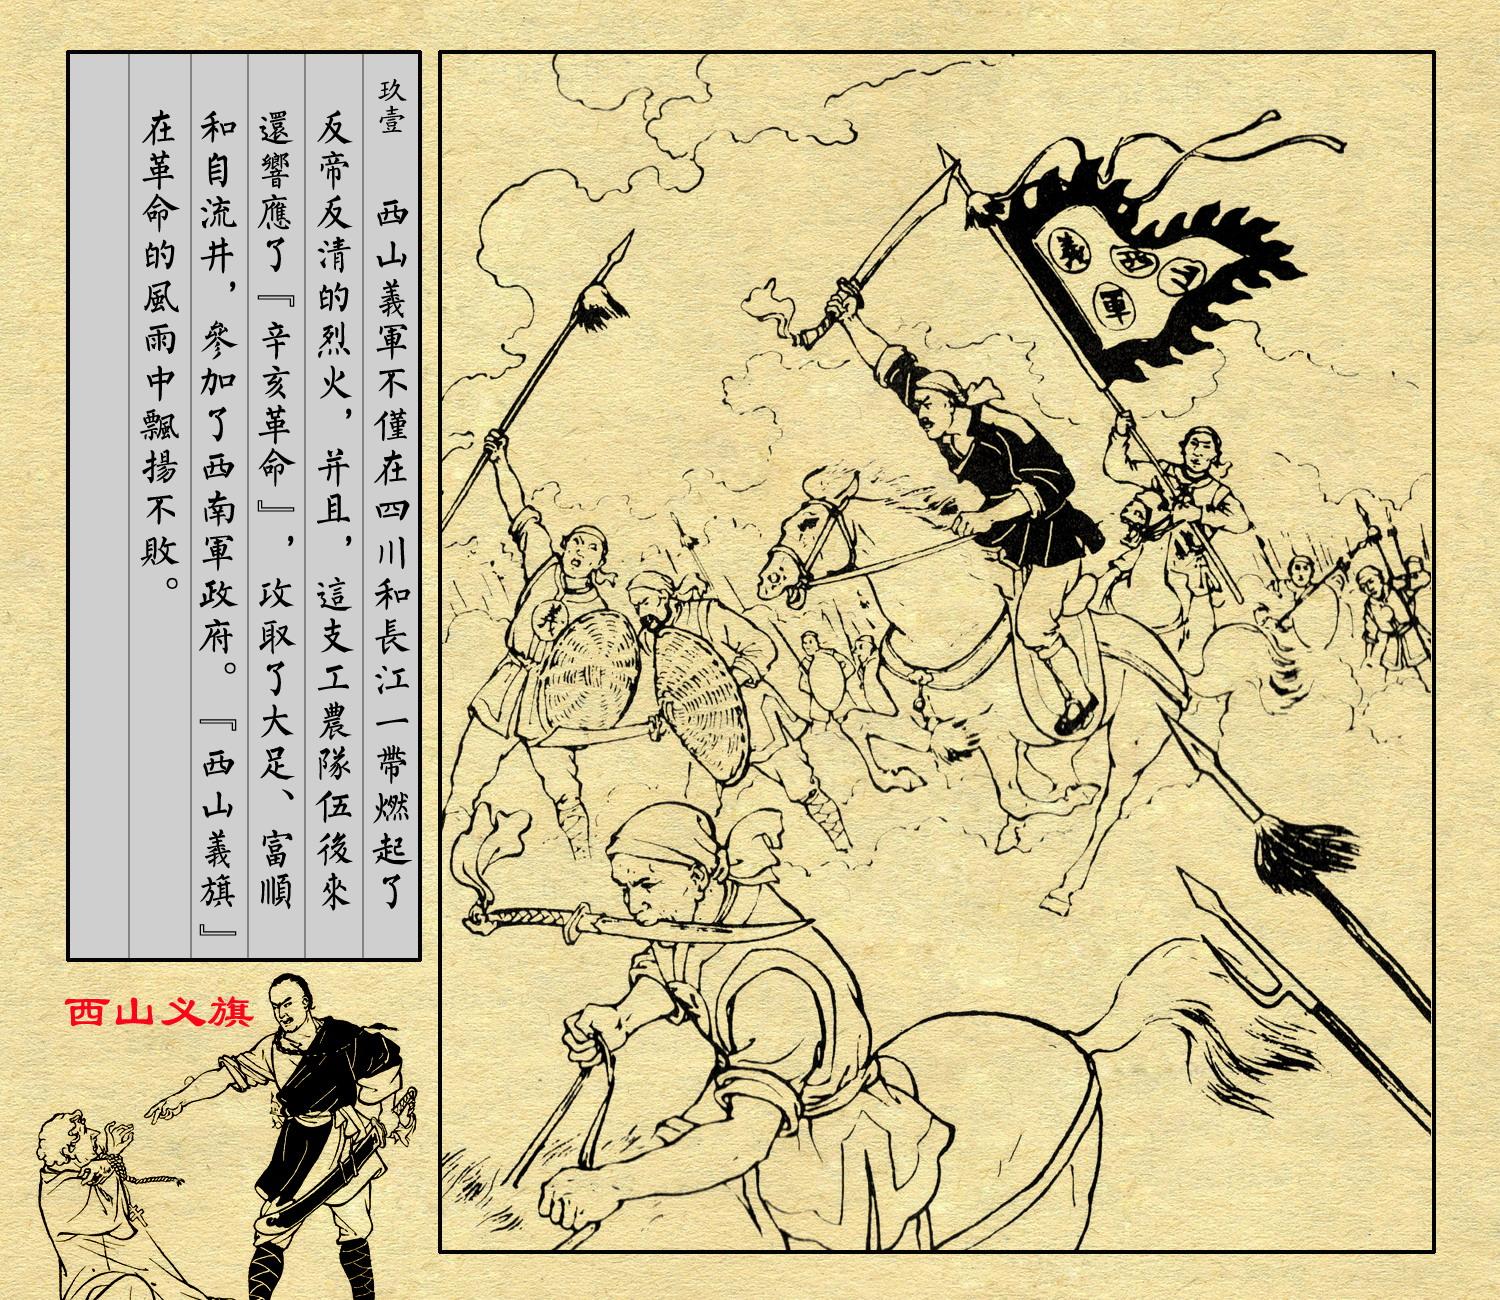 玖壹
西山義軍不僅在四川和長江一帶燃起了
反帝反清的烈火，并且，這支工農隊伍後來
還響應了『辛亥革命』，攻取了大足、富順
和自流井，參加了西南軍政府。『西山義旗』
在革命的風雨中飄揚不敗。
西山义旗
義西山
軍
義